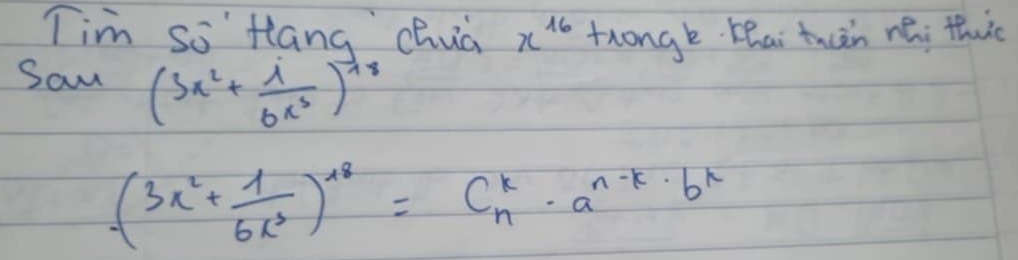 Tìm số Hạng chứa x¹⁶ trong k. khai triển nhị thức
Sau (3x² + 1/6x³)¹⁸
(3x² + 1/6x³)¹⁸ = Cₙᵏ . aⁿ⁻ᵏ . bᵏ